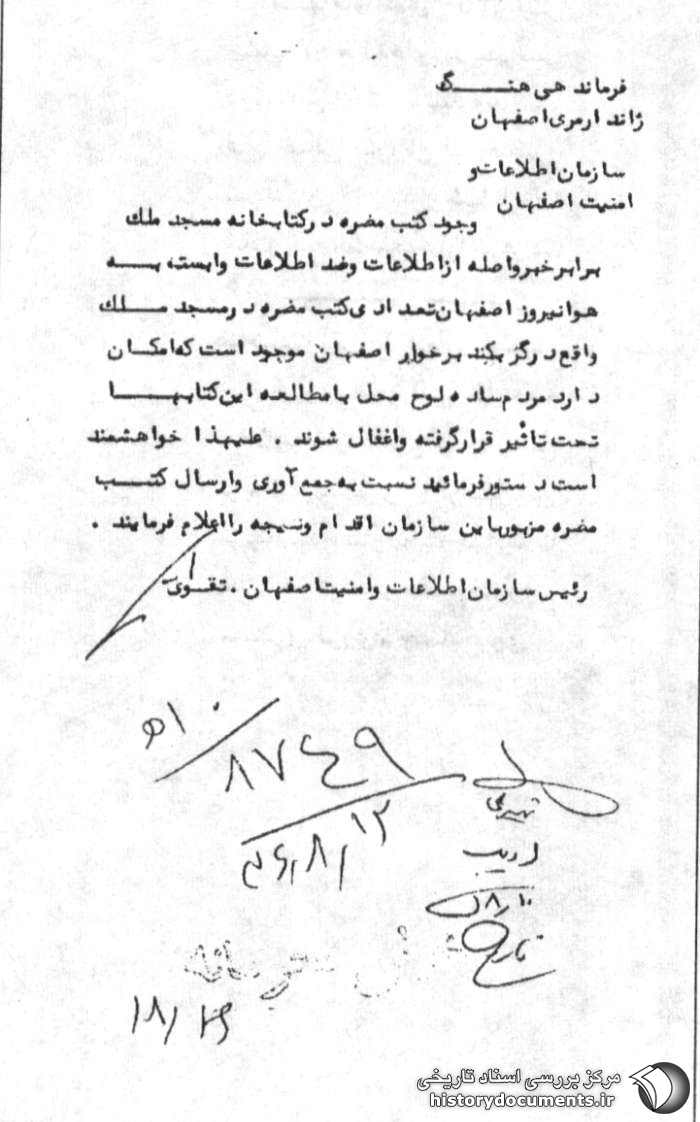 فرماندهی هنگ
ژاندارمری اصفهان
سازمان اطلاعات و
امنیت اصفهان
وجود کتب مضره در کتابخانه مسجد ملک
برابر خبر واصله از اطلاعات وضد اطلاعات وابسته به
هوانیروز اصفهان تعدادی کتب مضره در مسجد ملک
واقع در گز برخوار اصفهان موجود است که امکان
دارد مردم ساده لوح محل با مطالعه این کتابها
تحت تاثیر قرار گرفته واغفال شوند . علیهذا خواهشمند
است دستور فرمائید نسبت به جمع آوری وارسال کتب
مضره مزبور باین سازمان اقدام ونتیجه را اعلام فرمایند .
رئیس سازمان اطلاعات وامنیت اصفهان . تقوی
۱۰ ه
۸۷۴۹
۳۶/۸/۱۲
۱۸/
مرکز بررسی اسناد تاریخی
historydocuments.ir